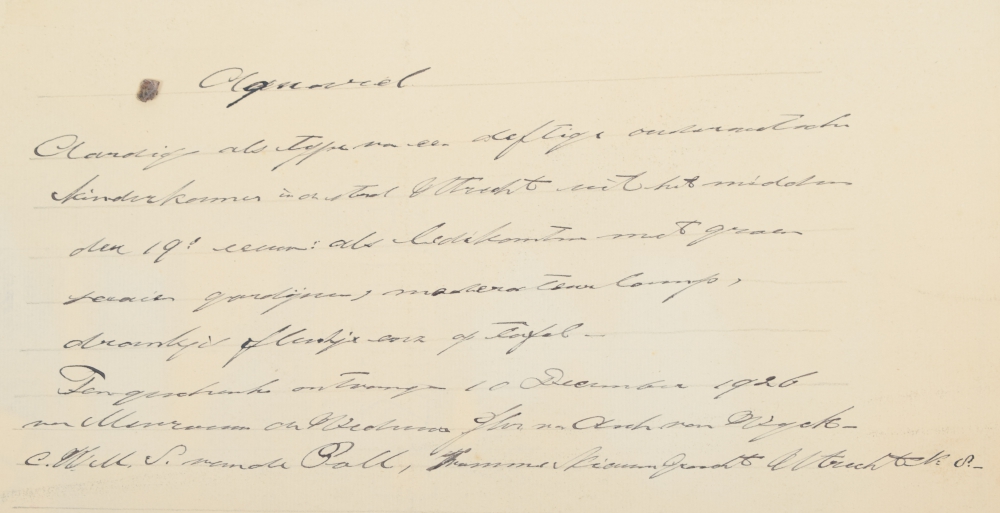 Aquarel
Aardig als type van een deftige ouderwetsche
kinderkamer in de stad Utrecht uit het midden
der 19e eeuw: als ledikanten met groen
saaien gordijnen, moderateur lamp,
drankje fleschje enz op tafel –
Ten geschenke ontvangen 10 December 1926
van Mevrouw de Weduwe Jhr van Asch van Wyck –
S. van de Poll, Kromme Nieuwe Gracht Utrecht